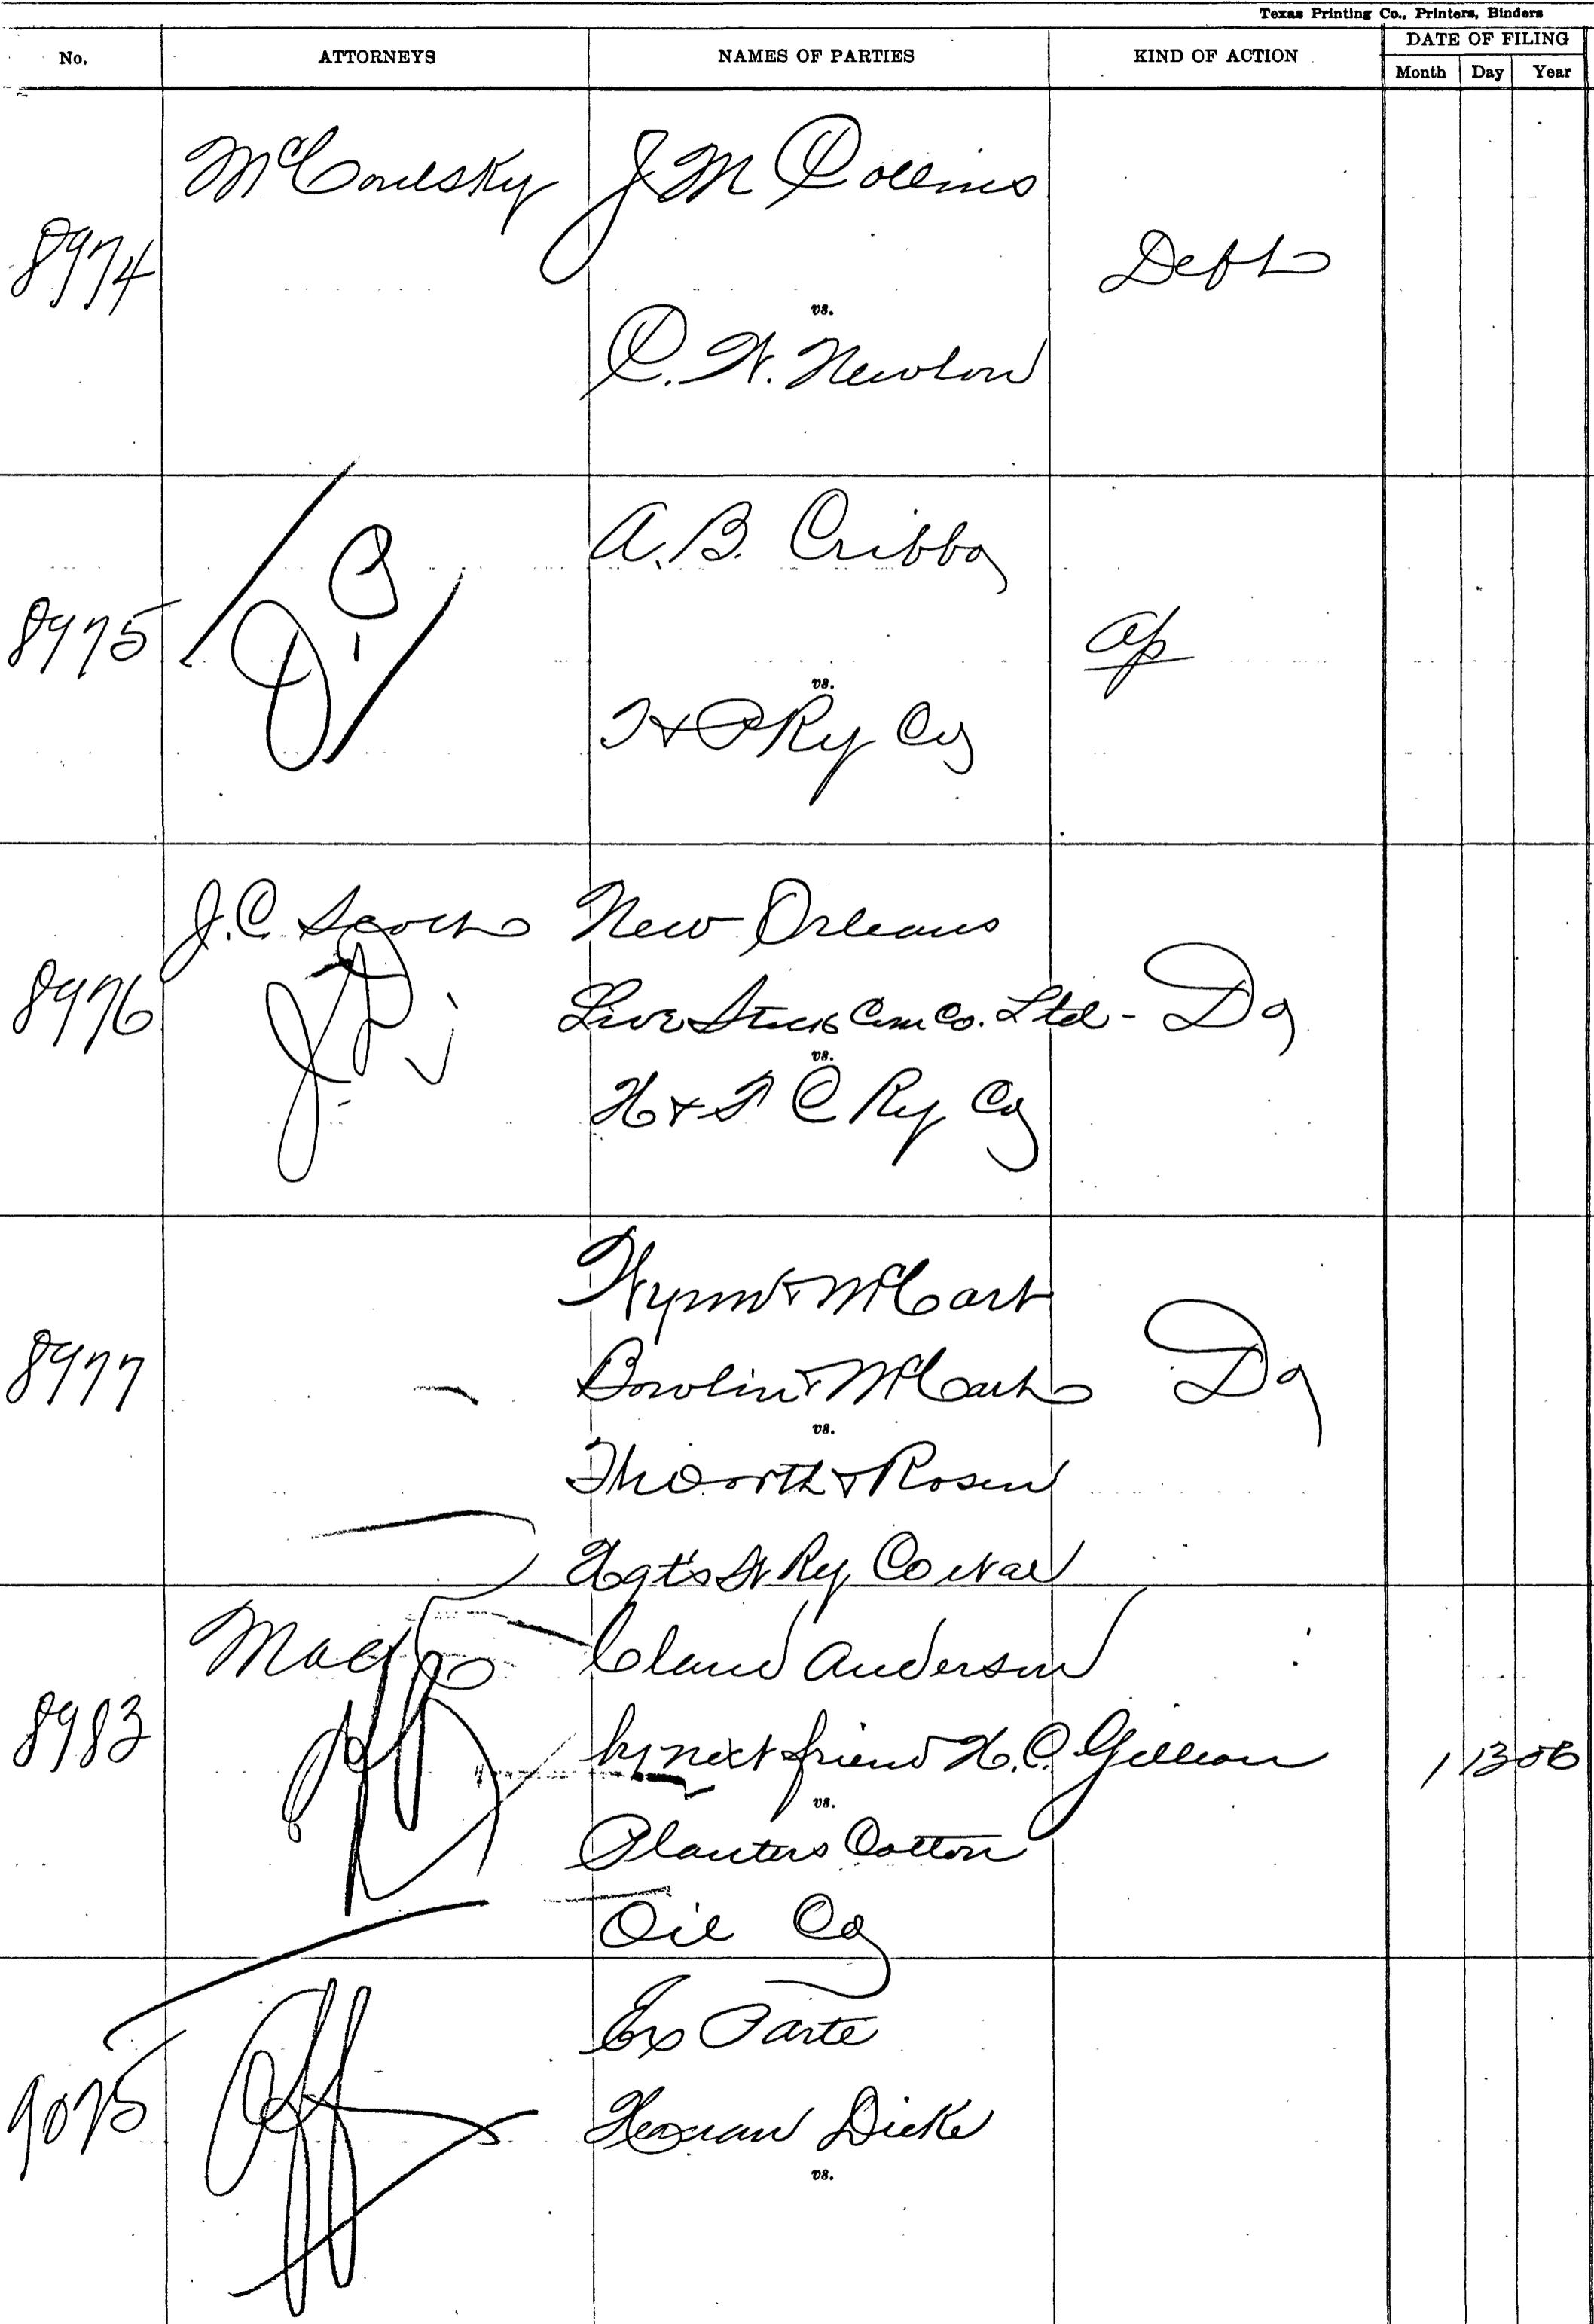 Texas Printing Co., Printers, Binders
No. ATTORNEYS NAMES OF PARTIES KIND OF ACTION DATE OF FILING
Month Day Year
8974 J M Collins Debt
vs.
C. W. Newton
8975 A. B. Cribbs ap
vs.
T & P Ry Co
8976 J. C. Scott New Orleans
Live Stock Com Co. Ltd - Do
vs.
H & T C Ry Co
8977 Wynn & McCart
Bowlin & McCart Do
vs.
Ftworth & Rosen
Hgts St Ry Co et al
8983 Mac Claud Anderson
by next friend H. C. Gilliam 1 13 06
vs.
Planters Cotton
Oil Co
9075 Ex Parte
Herman Dicke
vs.